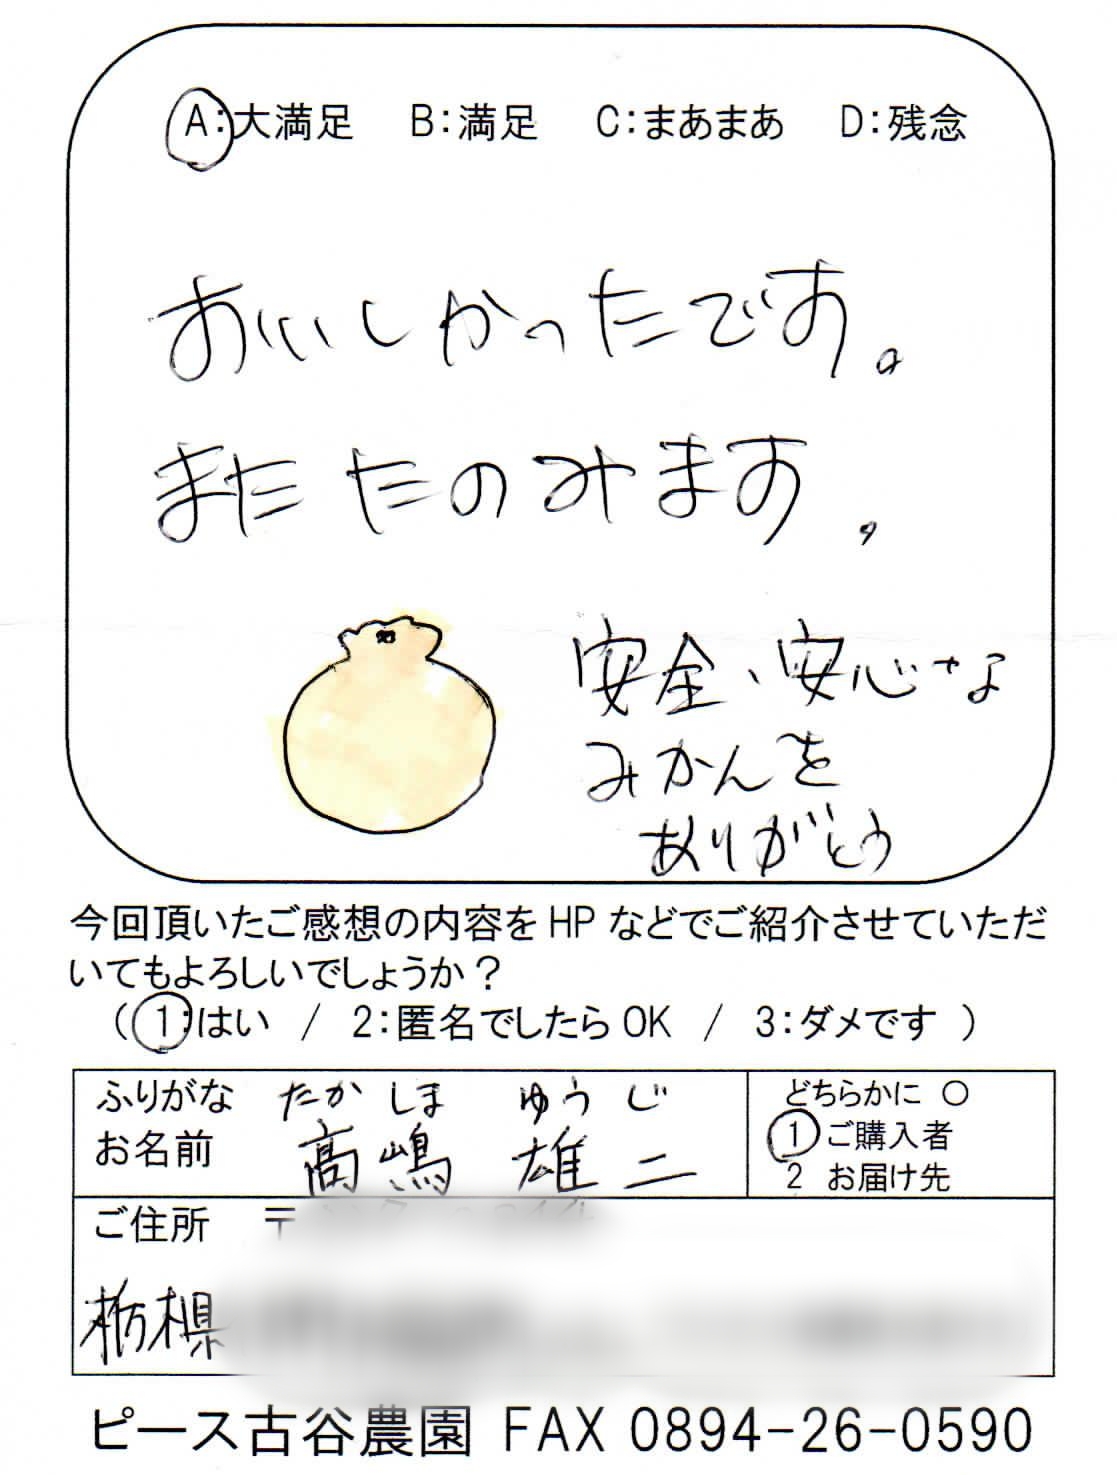 A:大満足 B:満足 C:まあまあ D:残念
おいしかったです。
またたのみます。
安全、安心な
みかんを
ありがとう
今回頂いたご感想の内容をHPなどでご紹介させていただ
いてもよろしいでしょうか？
（1:はい / 2:匿名でしたらOK / 3:ダメです）
ふりがな たかしま ゆうじ
お名前 髙嶋 雄二
どちらかに ○
1 ご購入者
2 お届け先
ご住所 〒
栃木県
ピース古谷農園 FAX 0894-26-0590